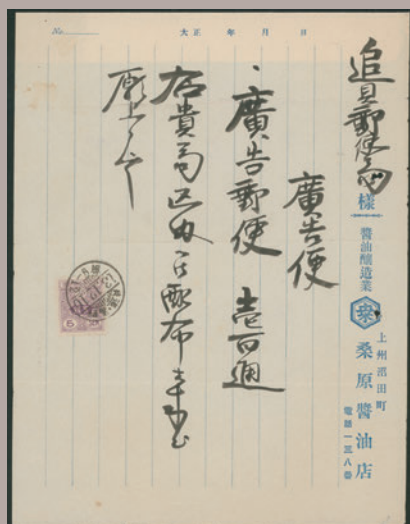 No. 大正 年 月 日
追貝郵便局 様
醬油釀造業
上州沼田町
桑原醬油店
電話一三八番
廣告便
廣告郵便 壱百通
右貴局区内 配布
願上